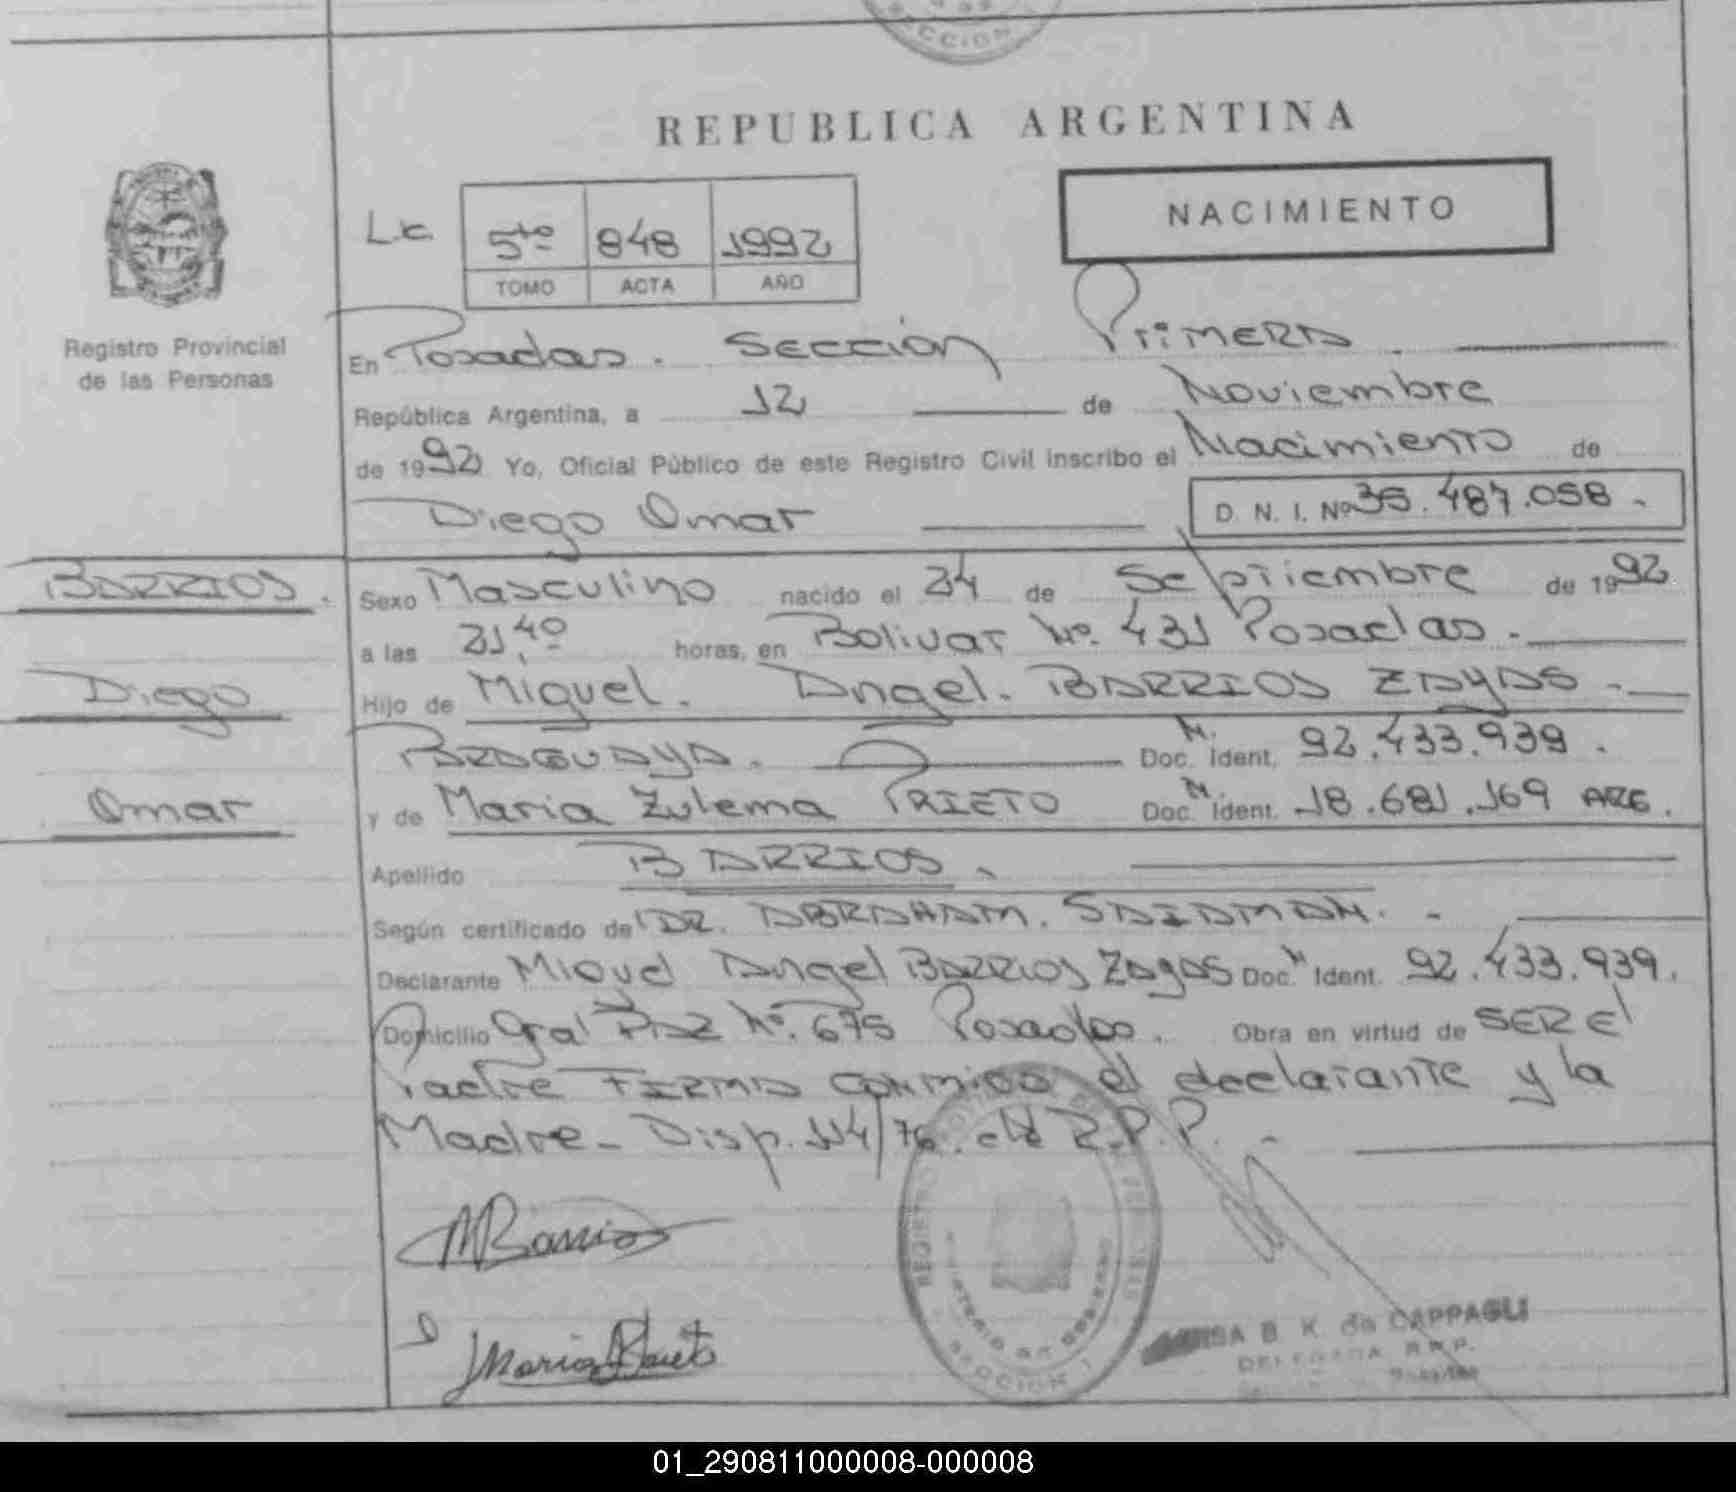 SECCION
REPUBLICA ARGENTINA
NACIMIENTO
L.c. 5to 848 1992
TOMO ACTA AÑO
Registro Provincial
de las Personas
En Posadas. Sección Primera.
República Argentina, a 12 de Noviembre
de 1992 Yo, Oficial Público de este Registro Civil inscribo el Nacimiento de
Diego Omar D. N. I. Nº 35.487.058.
BARRIOS. Sexo Masculino nacido el 24 de Septiembre de 1992
a las 21,40 horas, en Bolivar Nº. 431 Posadas.
Diego Hijo de Miguel. Angel. BARRIOS ZAYAS.
PARAGUAYA. Doc. Ident. 92.433.939.
Omar y de Maria Zulema PRIETO Doc. Ident. 18.681.169 ARG.
Apellido BARRIOS.
Según certificado de DR. ABRAHAM. SAIDMAN.
Declarante Miguel Angel BARRIOS Zayas Doc. Ident. 92.433.939.
Domicilio Gral PAZ Nº. 675 Posadas. Obra en virtud de SER El
Padre FIRMA CONMIGO el declarante y la
Madre - Disp. 114/76. del R.P.P.
MBarrios
REGISTRO
MINISTERIO DE GOBIERNO
SECCION 1
B. K. de CAPPAGLI
DELEGADA R.P.P.
01_290811000008-000008